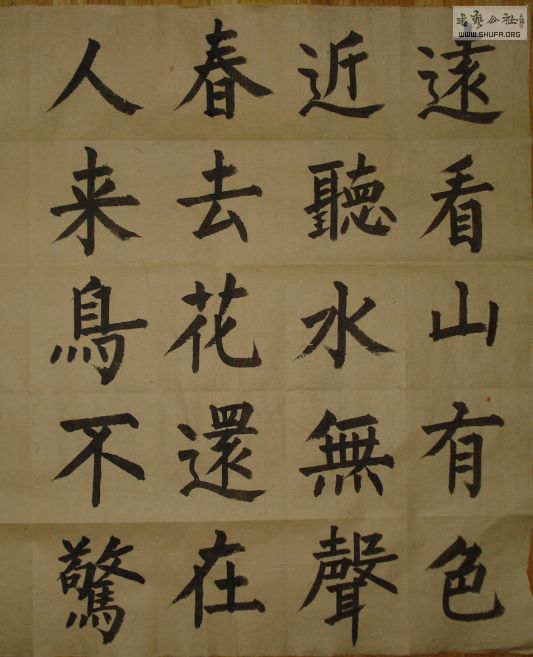 遠看山有色
近聽水無聲
春去花還在
人来鳥不驚
书艺公社
WWW.SHUFA.ORG